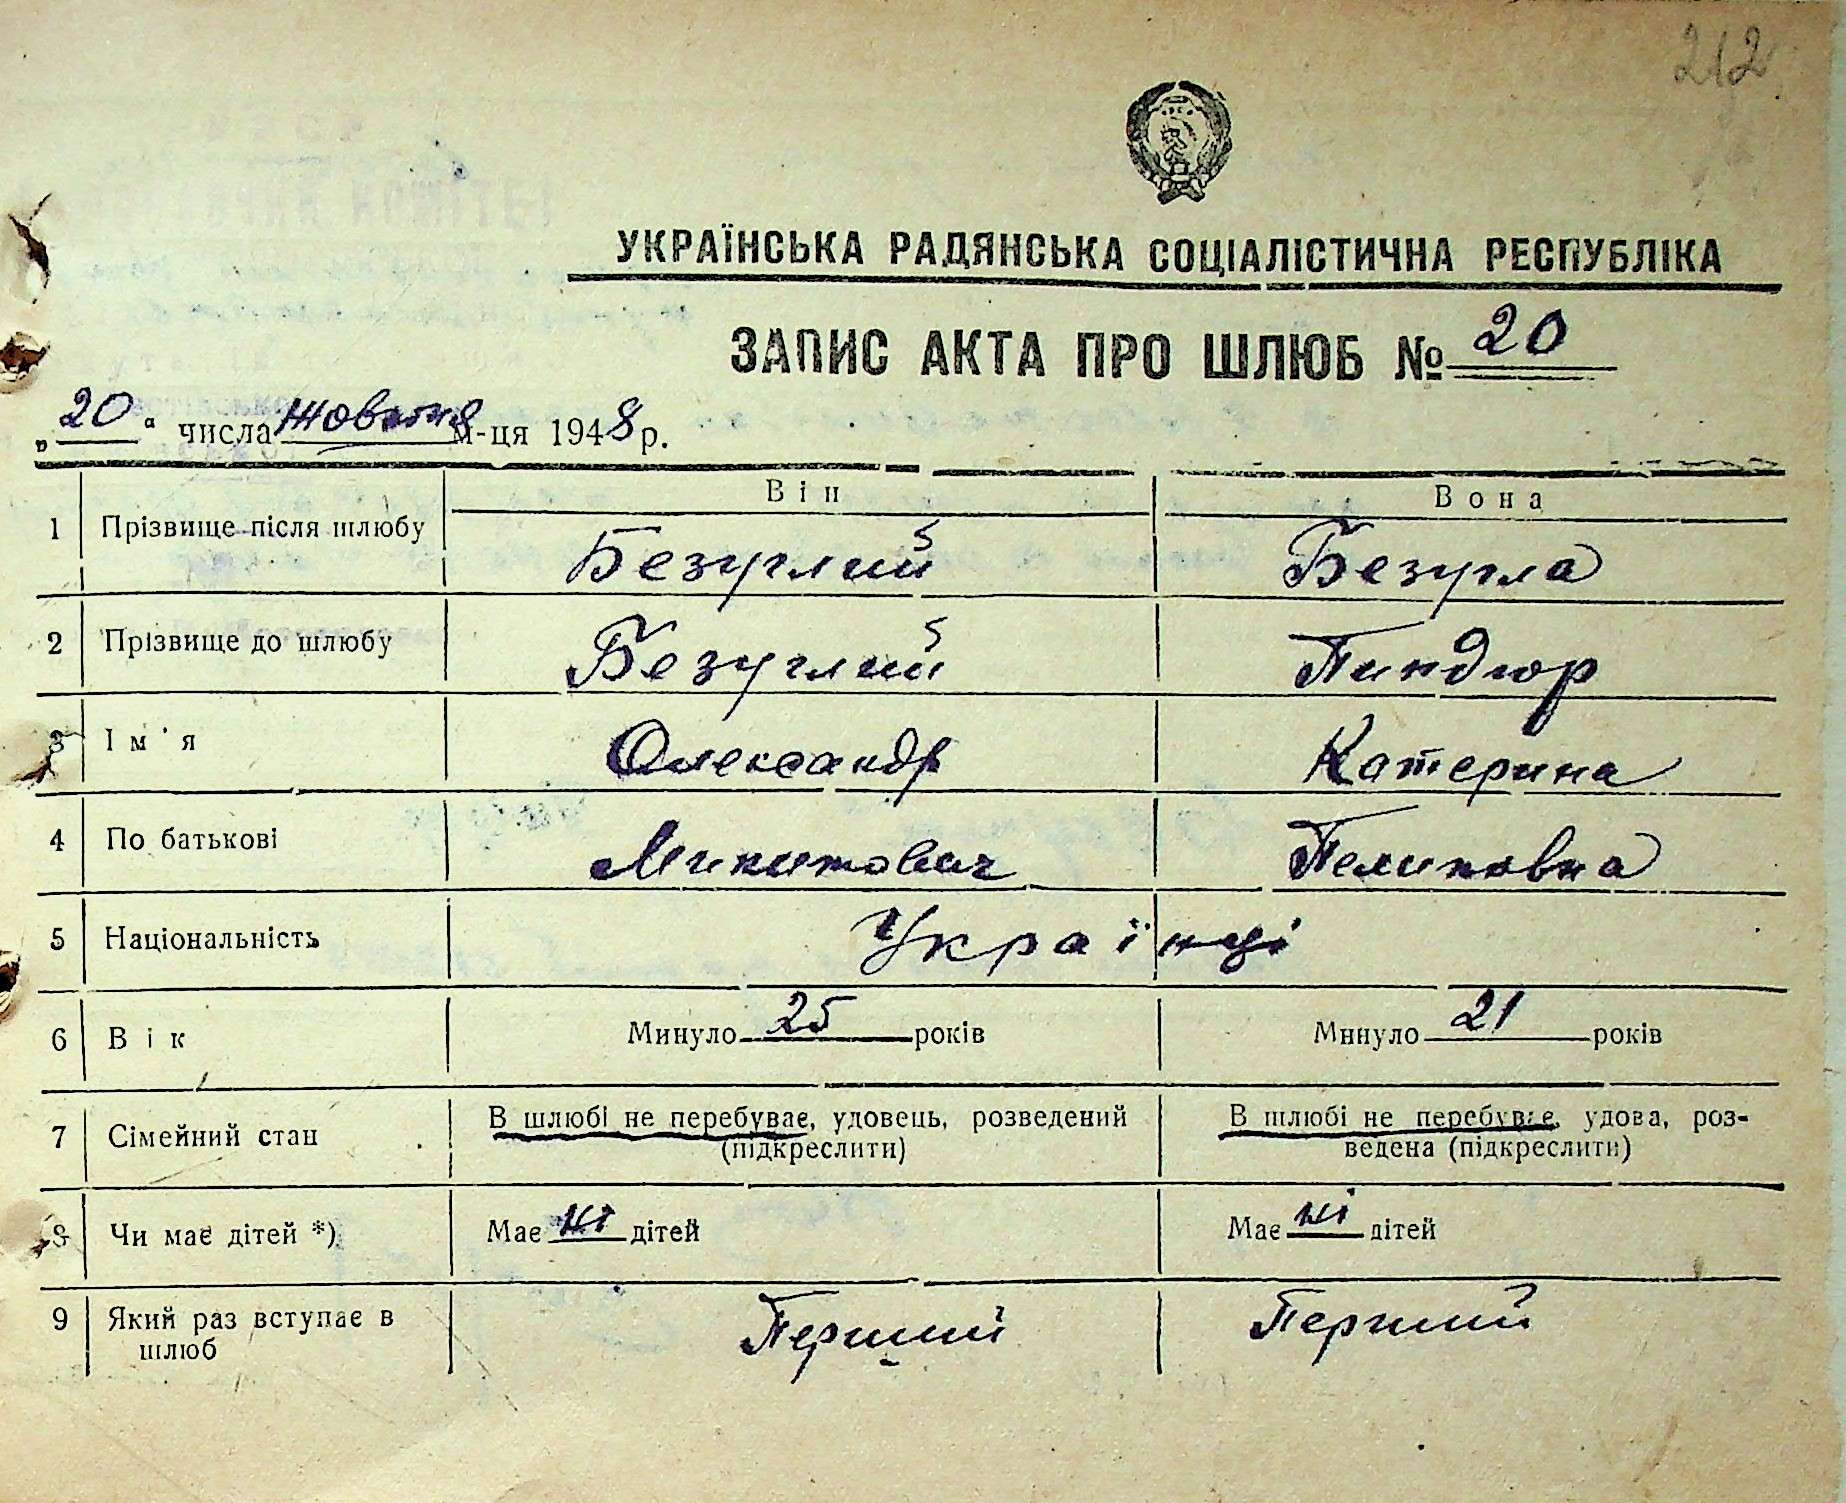 212
УКРАЇНСЬКА РАДЯНСЬКА СОЦІАЛІСТИЧНА РЕСПУБЛІКА
ЗАПИС АКТА ПРО ШЛЮБ № 20
„20“ числа Жовтня м-ця 1948 р.
Він Вона
1 Прізвище після шлюбу Безуглий Безугла
2 Прізвище до шлюбу Безуглий Пиндюр
3 Ім'я Олександр Катерина
4 По батькові Микитович Пелиповна
5 Національність Українці
6 Вік Минуло 25 років Минуло 21 років
7 Сімейний стан В шлюбі не перебуває, удовець, розведений В шлюбі не перебуває, удова, роз-
(підкреслити) ведена (підкреслити)
8 Чи має дітей *) Має ні дітей Має ні дітей
9 Який раз вступає в Перший Перший
шлюб